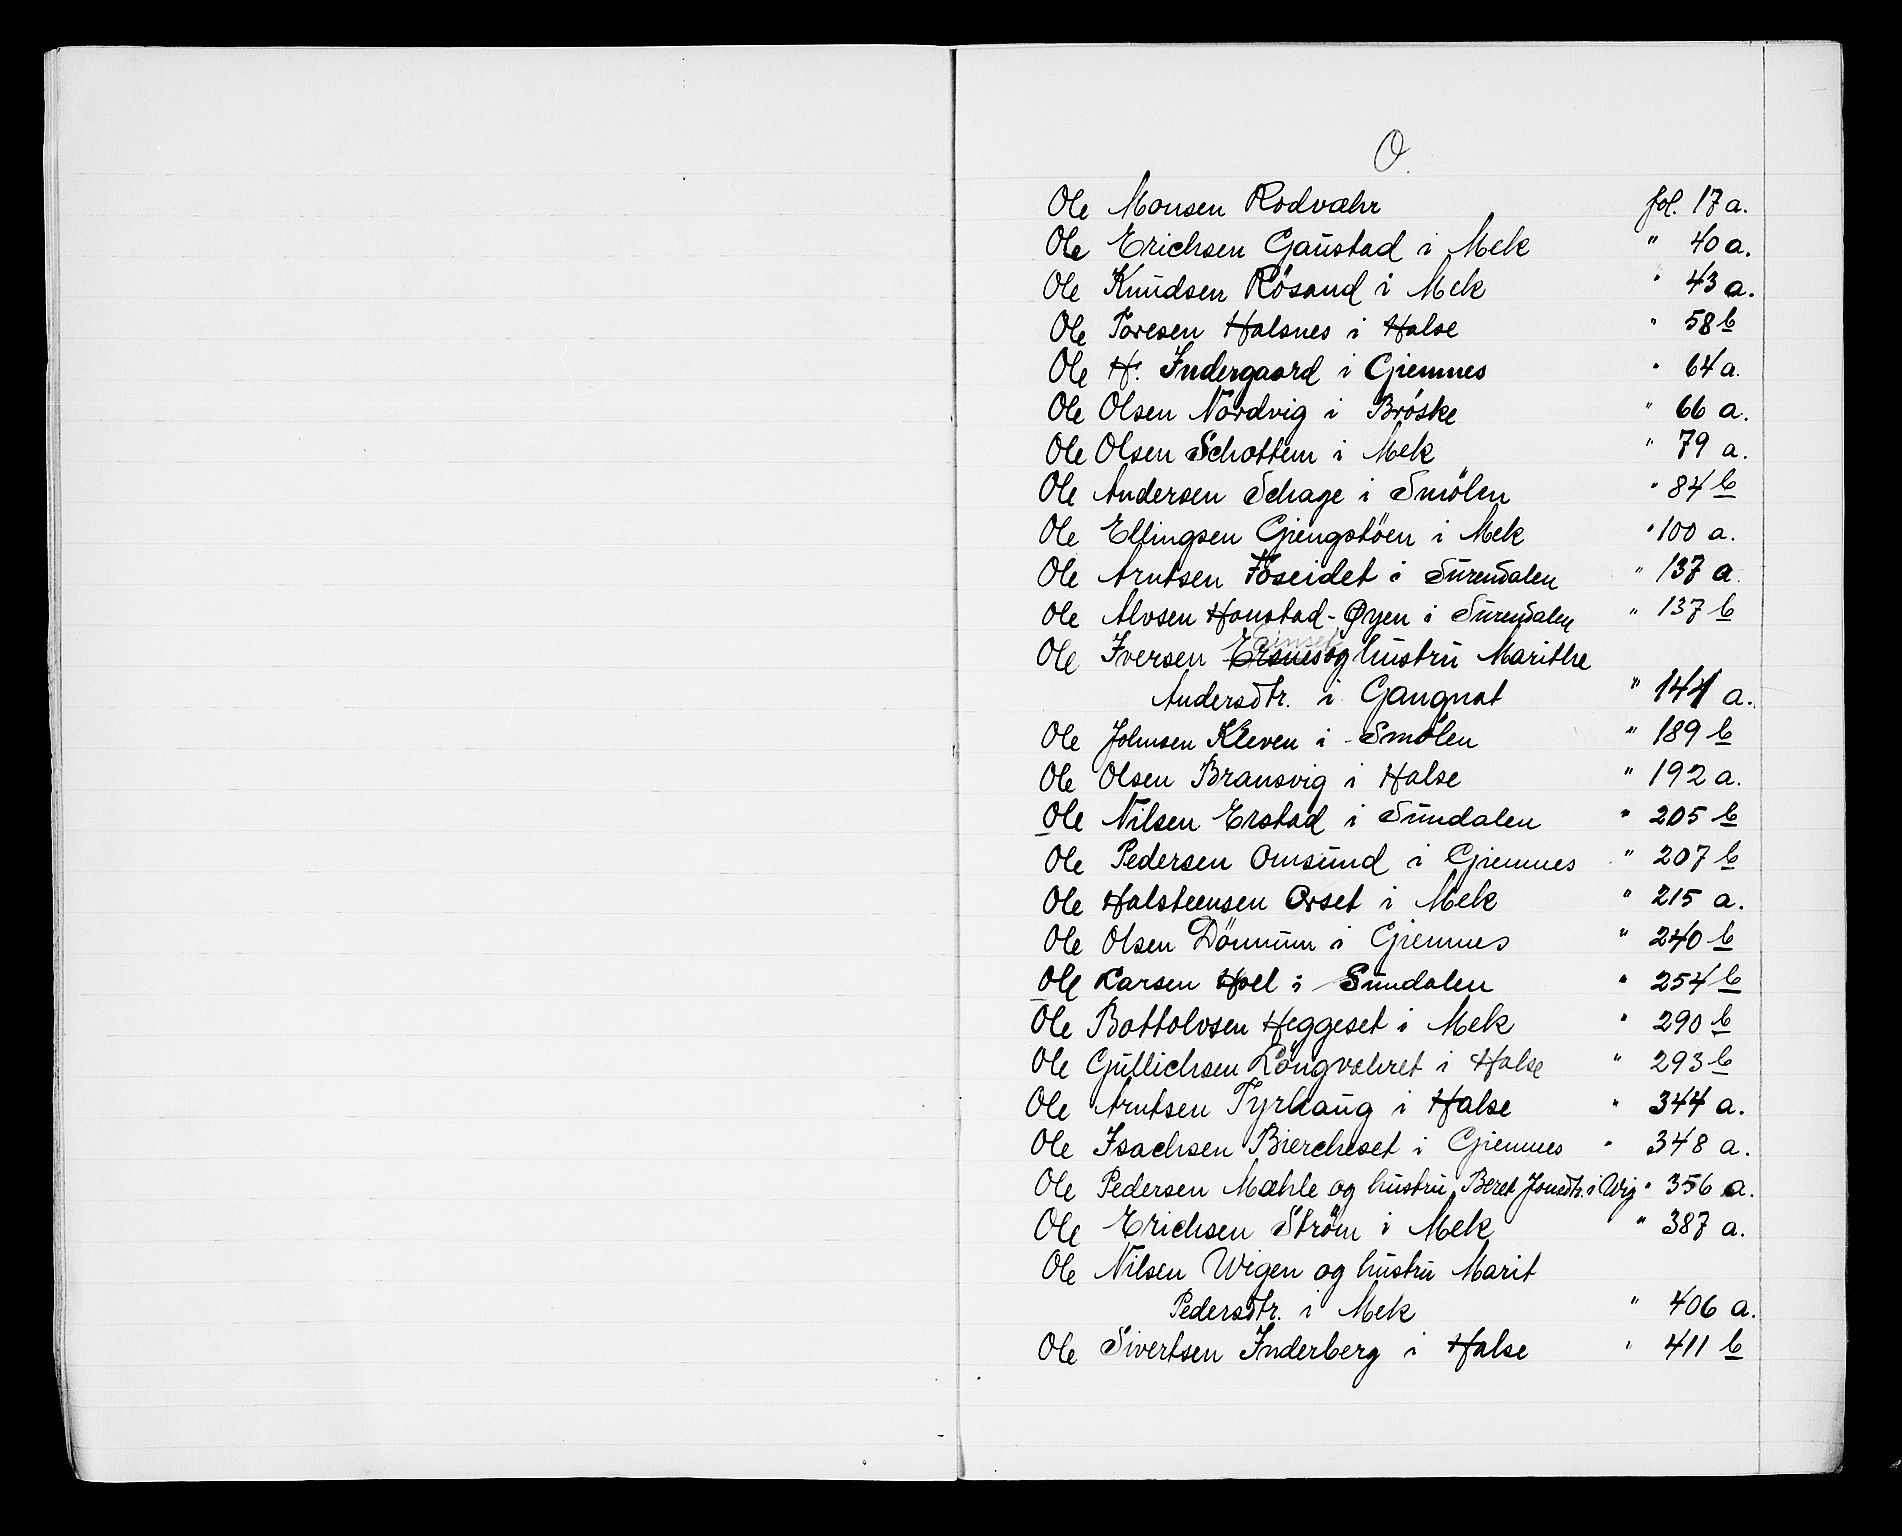 O.
Ole Monsen Rodvæhr fol. 17 a.
Ole Erichsen Gaustad i Mek " 40 a.
Ole Knudsen Rösand i Mek " 43 a.
Ole Toresen Halsnes i Halse " 58 b
Ole H. Indergaard i Gjemnes " 64 a.
Ole Olsen Nordvig i Bröske " 66 a.
Ole Olsen Schottem i Mek " 79 a.
Ole Andersen Schage i Smölen " 84 b
Ole Ellingsen Gjengstöen i Mek " 100 a.
Ole Arntsen Föseidet i Surendalen " 137 a
Ole Alvsen Honstad-Øyen i Surendalen " 137 b
Ole Iversen Ersnes og hustru Marithe
Andersdtr. i Gangnat " 141 a.
Ole Johnsen Kleven i Smölen " 189 b
Ole Olsen Bransvig i Halse " 192 a.
Ole Nilsen Erstad i Sundalen " 205 b
Ole Pedersen Omsund i Gjemnes " 207 b
Ole Halsteensen Orset i Mek " 215 a.
Ole Olsen Dönnum i Gjemnes " 240 b
Ole Larsen Hoel i Sundalen " 254 b
Ole Bottolvsen Heggeset i Mek " 290 b
Ole Gullichsen Langvehret i Halse " 293 b
Ole Arntsen Tyrhaug i Halse " 344 a.
Ole Isachsen Biercheset i Gjemnes " 348 a.
Ole Pedersen Mæhle og hustru Beret Jonsdtr. i Wig " 356 a.
Ole Erichsen Ström i Mek " 387 a.
Ole Nilsen Wigen og hustru Marit
Pedersdtr. i Mek " 406 a.
Ole Sivertsen Inderberg i Halse " 411 b